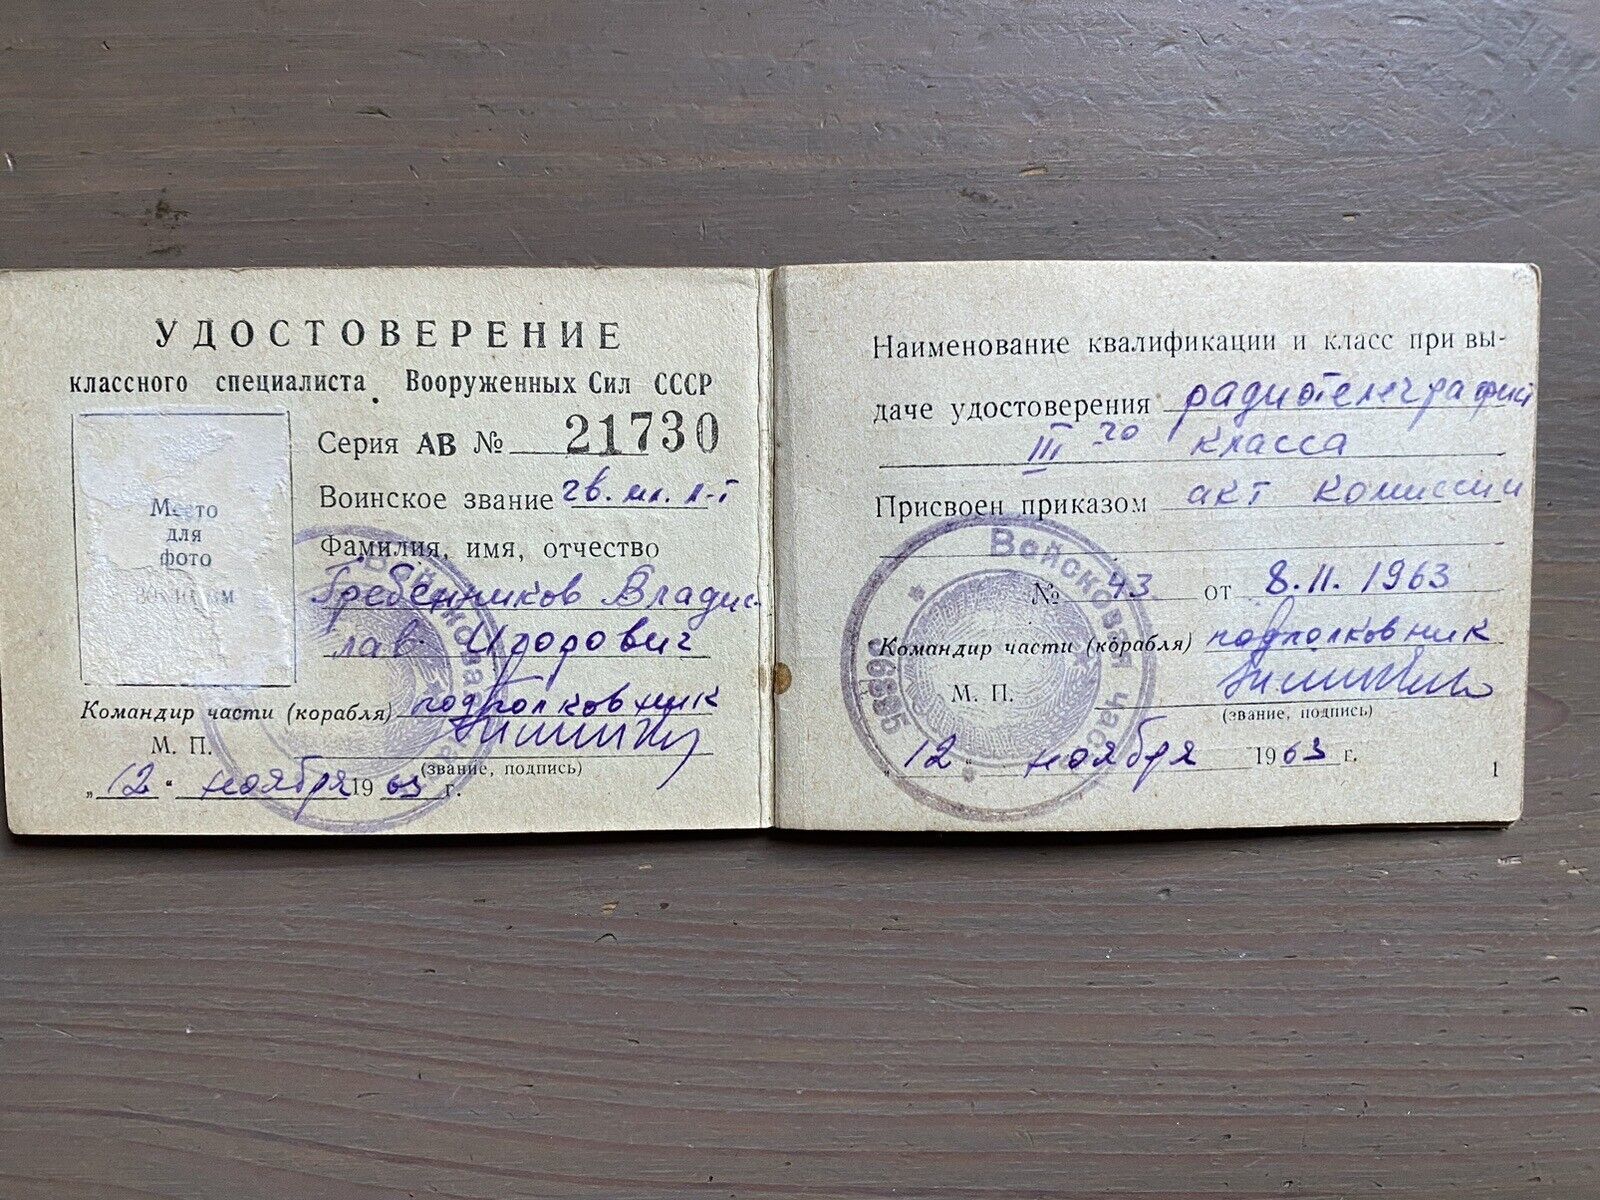 УДОСТОВЕРЕНИЕ
классного специалиста Вооруженных Сил СССР
Серия АВ № 21730
Воинское звание гв. мл. л-т
Фамилия, имя, отчество
Гребенников Владис-
лав
Место
для
фото
Командир части (корабля) подполковник
М. П.
(звание, подпись)
„12" ноября 1963 г.
Наименование квалификации и класс при вы-
даче удостоверения радиотелеграфист
III го класса
Присвоен приказом акт комиссии
№ 43 от 8.11.1963
Командир части (корабля) подполковник
М. П.
(звание, подпись)
„12" ноября 1963 г.
1
Войсковая
Войсковая часть